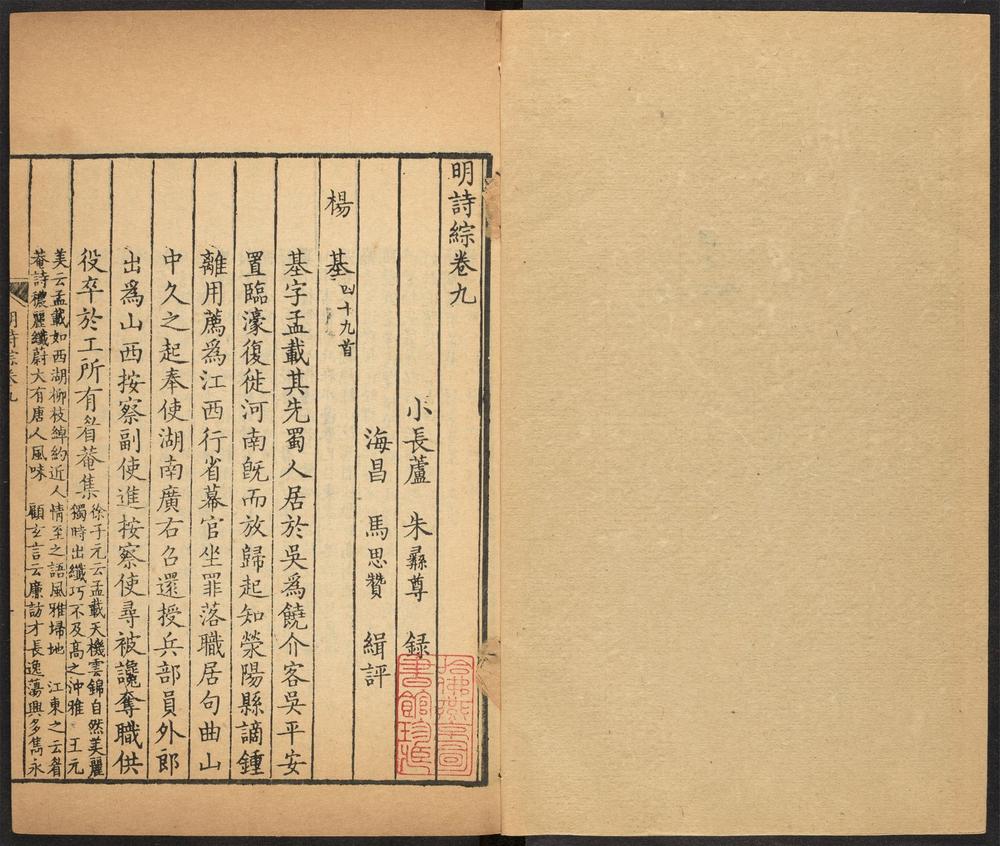 明詩綜卷九
小長蘆 朱彝尊 録
海昌 馬思贊 緝評
楊 基四十九首
基字孟載其先蜀人居於吳爲饒介客吳平安
置臨濠復徙河南旣而放歸起知滎陽縣謫鍾
離用薦爲江西行省幕官坐罪落職居句曲山
中久之起奉使湖南廣右召還授兵部員外郎
出爲山西按察副使進按察使尋被讒奪職供
役卒於工所有眉菴集徐子元云孟載天機雲錦自然美麗
獨時出纖巧不及高之沖雅 王元
美云孟載如西湖柳枝綽約近人情至之語風雅埽地 江東之云眉
菴詩穠麗纖蔚大有唐人風味 顧玄言云廉訪才長逸蕩興多雋永
明詩綜卷九
哈佛燕京圖
書館珍藏